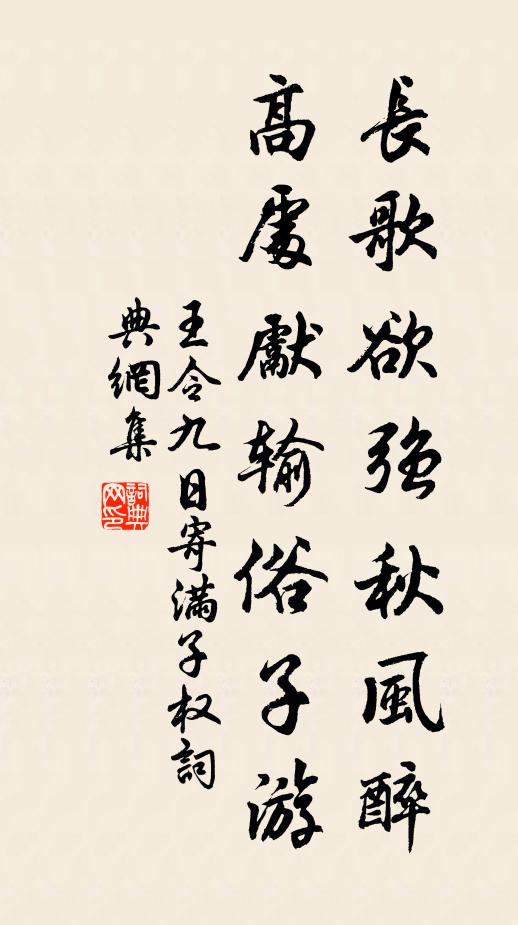 長歌欲強秋風醉
高處獻輸俗子游
王令九日寄滿子权詞
典網集
詞典網印